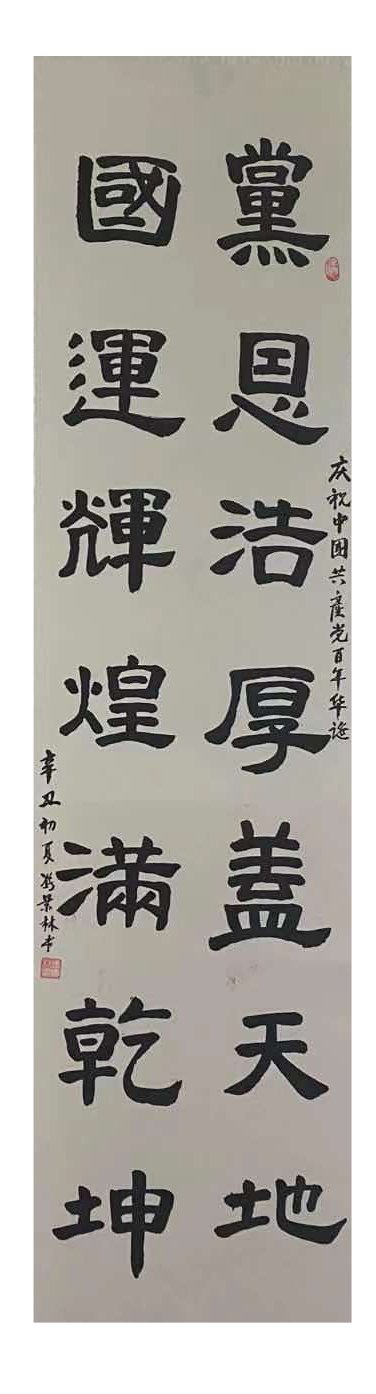 黨恩浩厚蓋天地
國運輝煌滿乾坤
庆祝中国共産党百年华诞
辛丑初夏 景林书